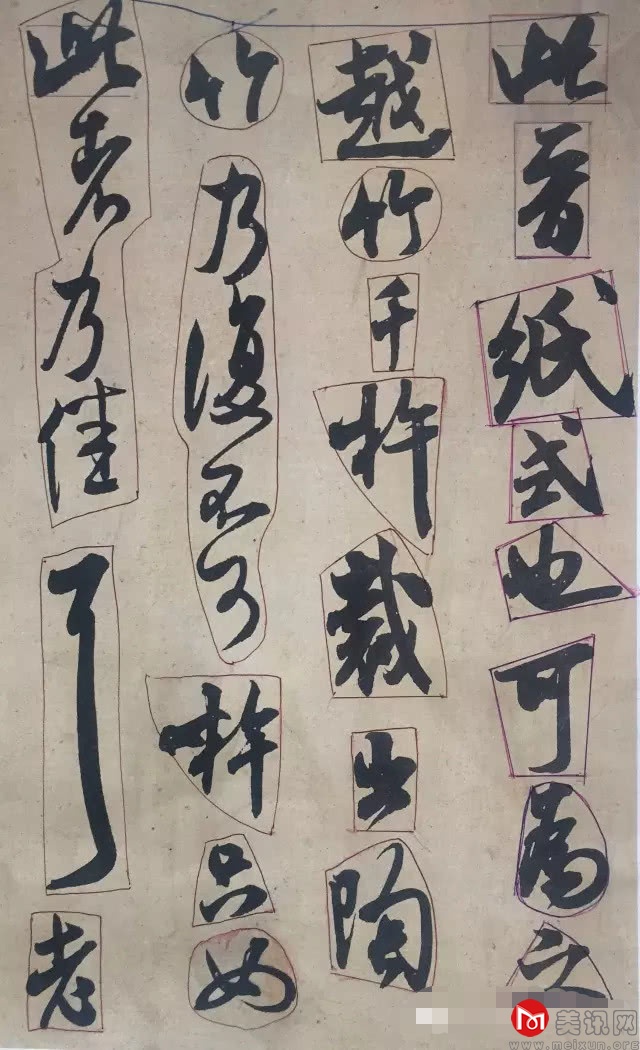 此晋纸式也可为之
越竹千杵裁出陶
竹乃復不可杵只如
此者乃佳
老
美讯网
www.meixun.org